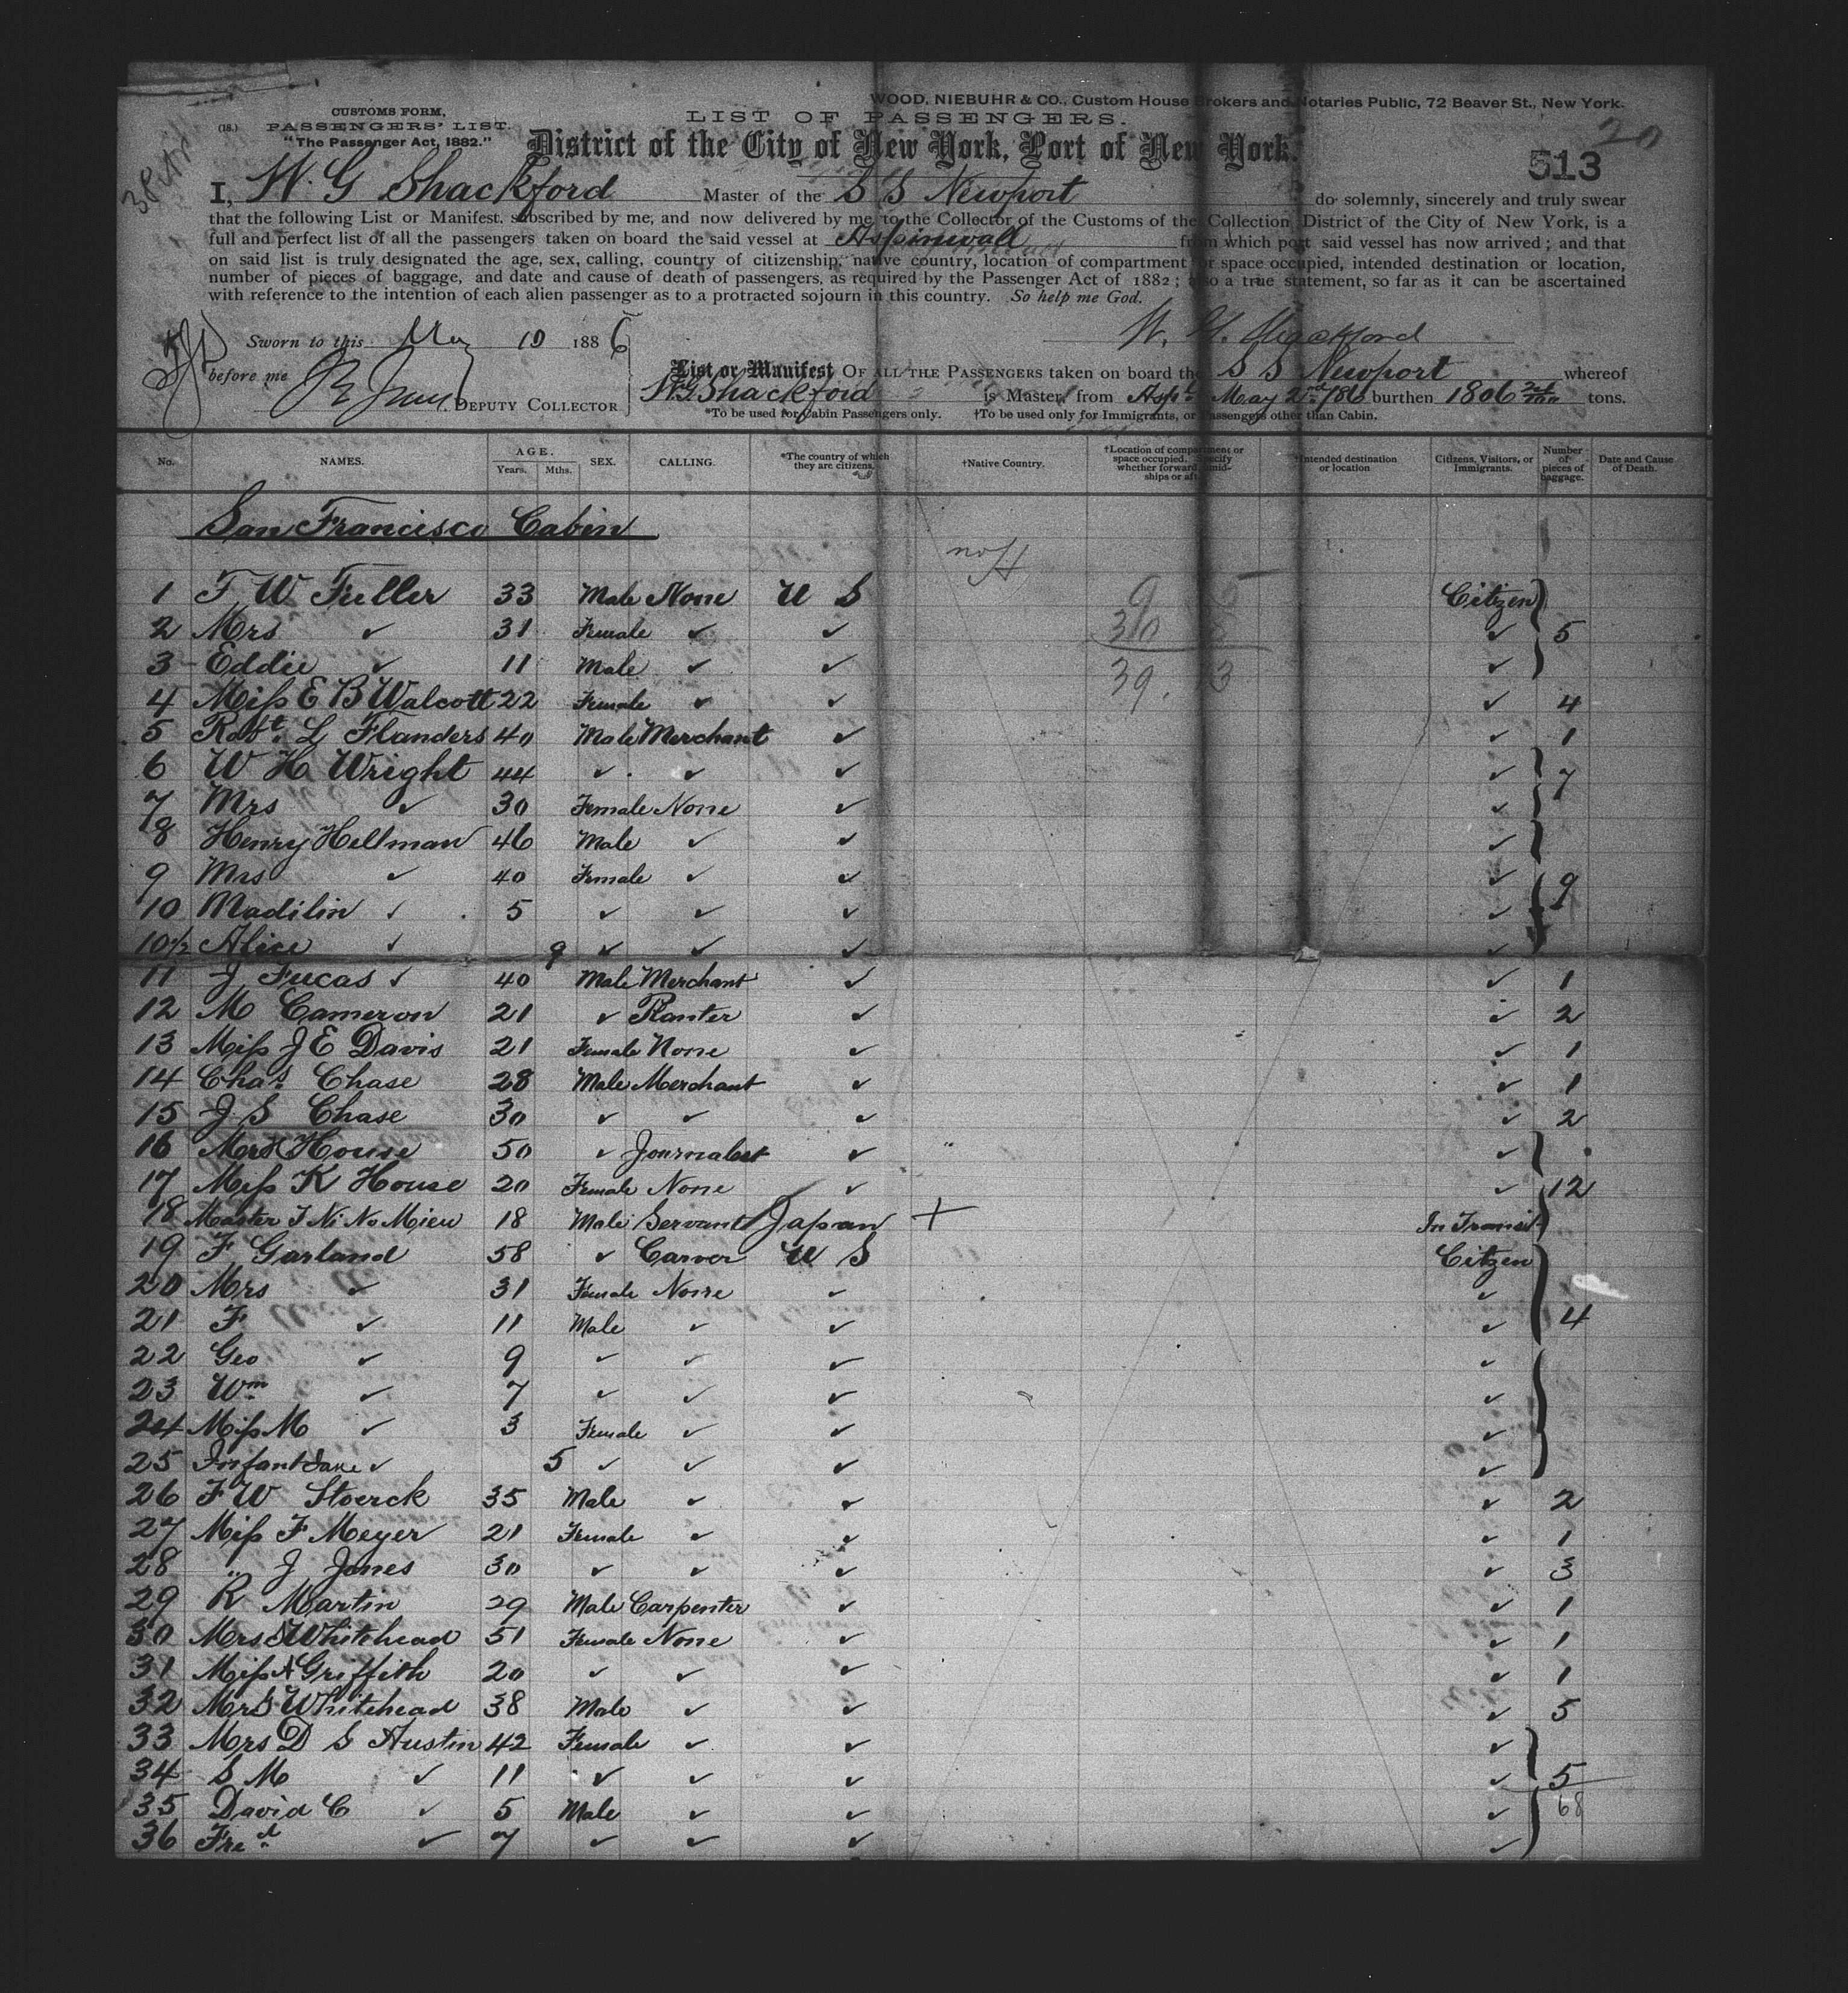 WOOD, NIEBUHR & CO., Custom House Brokers and Notaries Public, 72 Beaver St., New York.
CUSTOMS FORM,
LIST OF PASSENGERS.
(18.) PASSENGERS' LIST.
20
"The Passenger Act, 1882."
District of the City of New York, Port of New York.
513
I, W. G Shackford Master of the S S Newport do solemnly, sincerely and truly swear
that the following List or Manifest, subscribed by me, and now delivered by me to the Collector of the Customs of the Collection District of the City of New York, is a
full and perfect list of all the passengers taken on board the said vessel at Aspinwall from which port said vessel has now arrived; and that
on said list is truly designated the age, sex, calling, country of citizenship, native country, location of compartment or space occupied, intended destination or location,
number of pieces of baggage, and date and cause of death of passengers, as required by the Passenger Act of 1882; also a true statement, so far as it can be ascertained
with reference to the intention of each alien passenger as to a protracted sojourn in this country. So help me God.
W. G. Shackford
Sworn to this May 10 1886
before me
DEPUTY COLLECTOR
List or Manifest OF ALL THE PASSENGERS taken on board the S S Newport whereof
W G Shackford is Master, from Aspl May 2nd 186 burthen 1806 tons.
*To be used for Cabin Passengers only. †To be used only for Immigrants, or Passengers other than Cabin.
No. NAMES. AGE. Years. Mths. SEX. CALLING. *The country of which they are citizens. †Native Country. †Location of compartment or space occupied. Specify whether forward, amidships or aft. †Intended destination or location Citizens, Visitors, or Immigrants. Number of pieces of baggage. Date and Cause of Death.
San Francisco Cabin
1 F W Fuller 33 Male None U S Citizen
2 Mrs ✓ 31 Female ✓ ✓ ✓ 5
3 Eddie ✓ 11 Male ✓ ✓ ✓
4 Miss E B Walcott 22 Female ✓ ✓ ✓ 4
5 Robt. L Flanders 40 Male Merchant ✓ ✓ 1
6 W H Wright 44 ✓ ✓ ✓ ✓ 7
7 Mrs ✓ 30 Female None ✓ ✓
8 Henry Hellman 46 Male ✓ ✓ ✓
9 Mrs ✓ 40 Female ✓ ✓ ✓ 9
10 Madilin ✓ 5 ✓ ✓ ✓ ✓
10½ Alice ✓ 9 ✓ ✓ ✓ ✓
11 J Fucas ✓ 40 Male Merchant ✓ ✓ 1
12 M Cameron 21 ✓ Planter ✓ ✓ 2
13 Miss J E Davis 21 Female None ✓ ✓ 1
14 Chas. Chase 28 Male Merchant ✓ ✓ 1
15 J S Chase 30 ✓ ✓ ✓ ✓ 2
16 House 50 ✓ Journalist ✓ ✓
17 Miss K House 20 Female None ✓ ✓ 12
18 Master I Ni No Mieu 18 Male Servant Japan + In Transit
19 F Garland 58 ✓ Carver U S Citzen
20 Mrs ✓ 31 Female None ✓ ✓
21 F ✓ 11 Male ✓ ✓ ✓ 4
22 Geo ✓ 9 ✓ ✓ ✓ ✓
23 Wm. ✓ 7 ✓ ✓ ✓ ✓
24 Miss M ✓ 3 Female ✓ ✓ ✓
25 Infant Jane ✓ 5 ✓ ✓ ✓ ✓
26 F W Stoerck 35 Male ✓ ✓ ✓ 2
27 Miss F Meyer 21 Female ✓ ✓ ✓ 1
28 " J Jones 30 ✓ ✓ ✓ ✓ 3
29 R Martin 29 Male Carpenter ✓ ✓ 1
30 Mrs Whitehead 51 Female None ✓ ✓ 1
31 Miss A Griffith 20 ✓ ✓ ✓ ✓ 1
32 Mr G Whitehead 38 Male ✓ ✓ ✓ 5
33 Mrs D G Austin 42 Female ✓ ✓ ✓
34 S M ✓ 11 ✓ ✓ ✓ ✓ 5
35 David C ✓ 5 Male ✓ ✓ ✓ 68
36 Fred ✓ 7 ✓ ✓ ✓ ✓